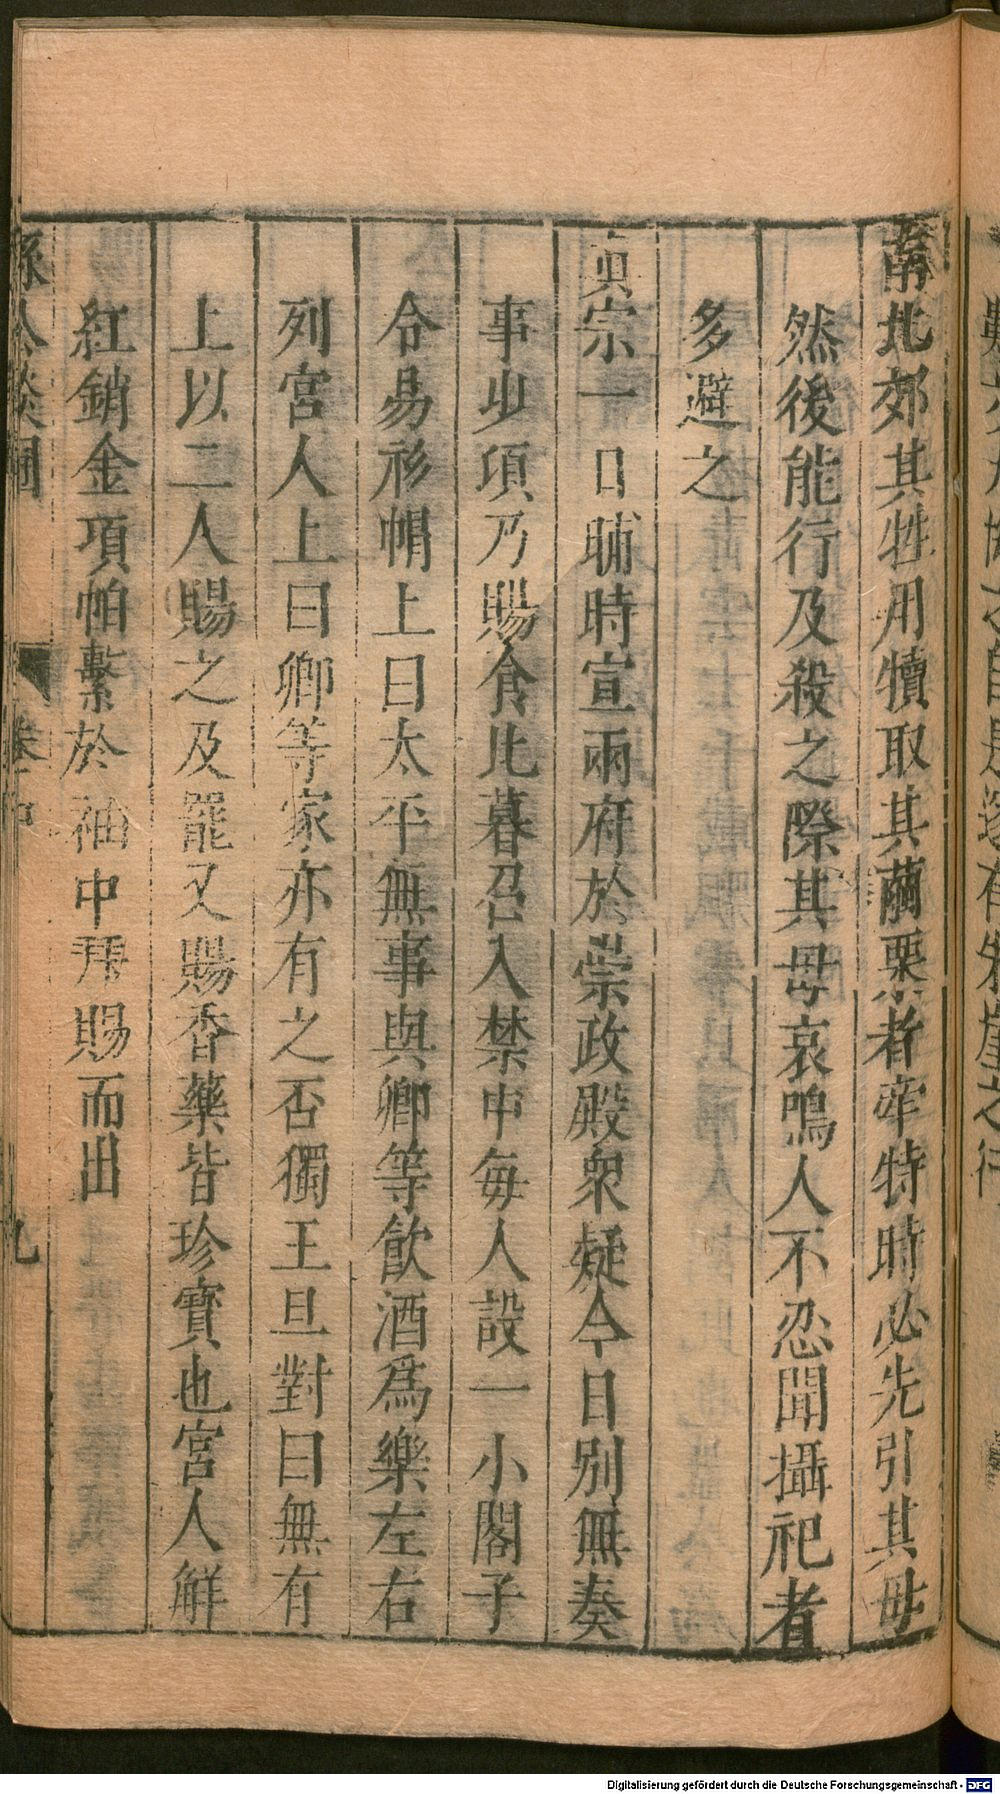 南北郊其牲用犢取其繭栗者牽特時必先引其母
然後能行及殺之際其母哀鳴人不忍聞攝祀者
多避之
真宗一日晡時宣兩府於崇政殿衆疑今日別無奏
事少項乃賜食比暮召入禁中每人設一小閣子
令易衫帽上曰太平無事與卿等飲酒爲樂左右
列宮人上曰卿等家亦有之否獨王旦對曰無有
上以二人賜之及罷又賜香藥皆珍寶也宮人解
紅銷金項帕繫於袖中拜賜而出
孫公談圃
卷中
九
Digitalisierung gefördert durch die Deutsche Forschungsgemeinschaft - DFG